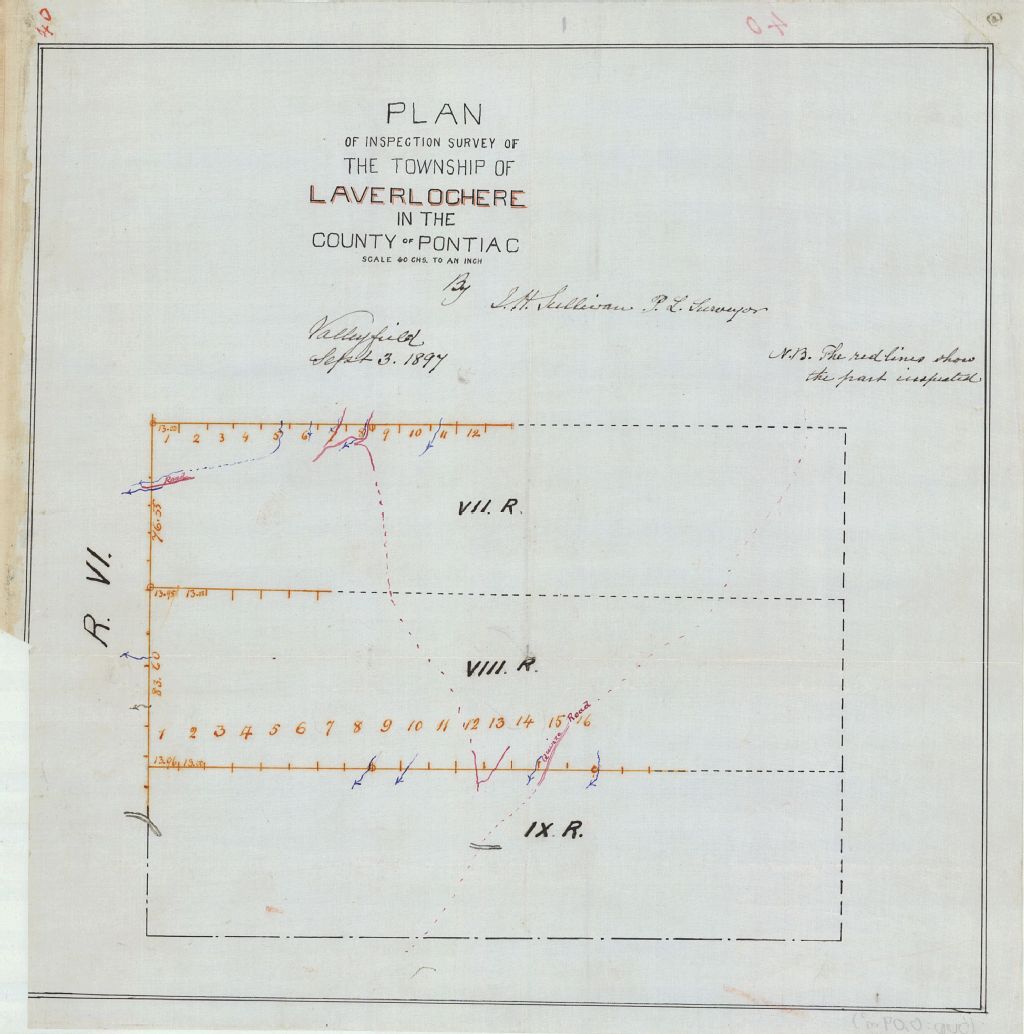 40
40
PLAN
OF INSPECTION SURVEY OF
THE TOWNSHIP OF
LAVERLOCHERE
IN THE
COUNTY OF PONTIAC
SCALE 40 CHS. TO AN INCH
By
J. H. Sullivan P. L. Surveyor
Valleyfield
Sept 3. 1897
N.B. The red lines show
the part inspected
13.00
1 2 3 4 5 6 7 8 9 10 11 12
Road
VII. R.
76.55
R. VI.
13.45 13.00
VIII. R.
83.60
1 2 3 4 5 6 7 8 9 10 11 12 13 14 15 16
Road
13.06
IX R.